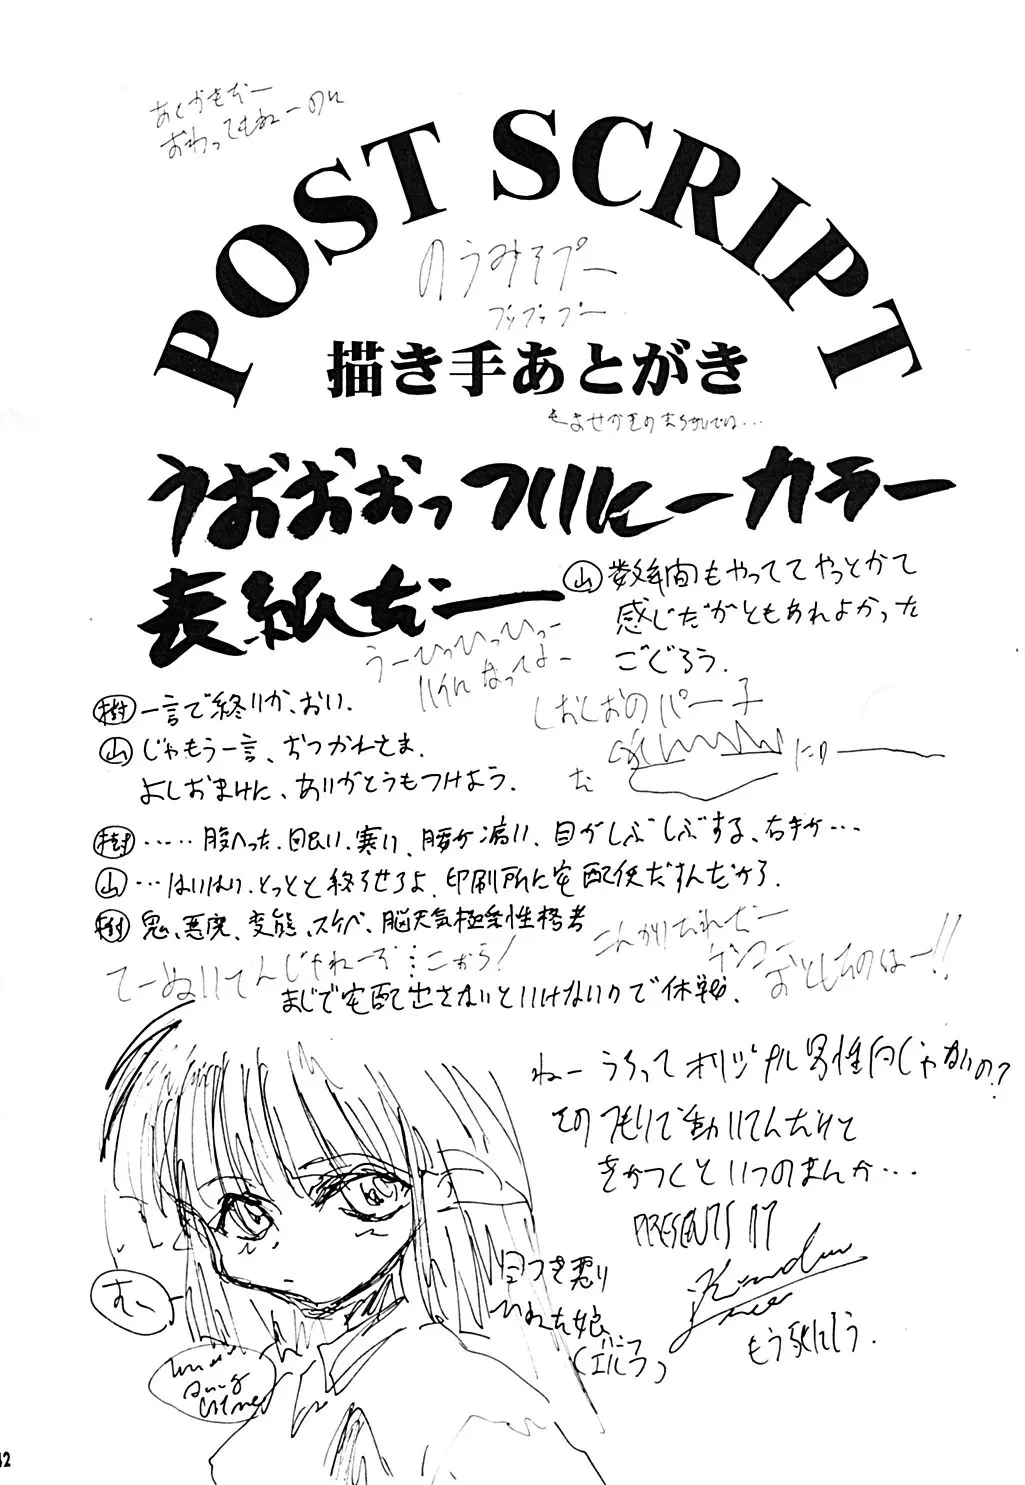 あとがきだー
おわってもねーのに
POST SCRIPT
のうみそプー
プップップー
描き手あとがき
うおおおっついにーカラー
表紙だーー
山 数年間もやっててやっとかて
感じだがともあれよかった
ごくろう.
うーひっひっひっー
ハイになってよー
樹 一言で終りか、おい.
しおしおのパー子
山 じゃもう一言、おつかれさま.
よしおまけに、ありがとうもつけよう.
樹 ‥‥‥腹へった、眠い、寒い、腰が痛い、目がしぶしぶする、右手が…
山 …はいはい、とっとと終らせろよ、印刷所に宅配便だすんだから.
樹 鬼、悪魔、変態、スケベ、脳天気極楽性格者
こんがりたれだー
てーぬいてんじゃねーぞ…こおら!
ゲンコー
おとしたのはー!!
まじで宅配出さないといけないので休戦.
ねー うちってオリジナル男性向じゃないの?
そのつもりで動いてんだけど
きがつくといつのまんか…
PRESENTS
むっ
目つき悪い
ひねた娘
(エルフ)
もう死にそう.